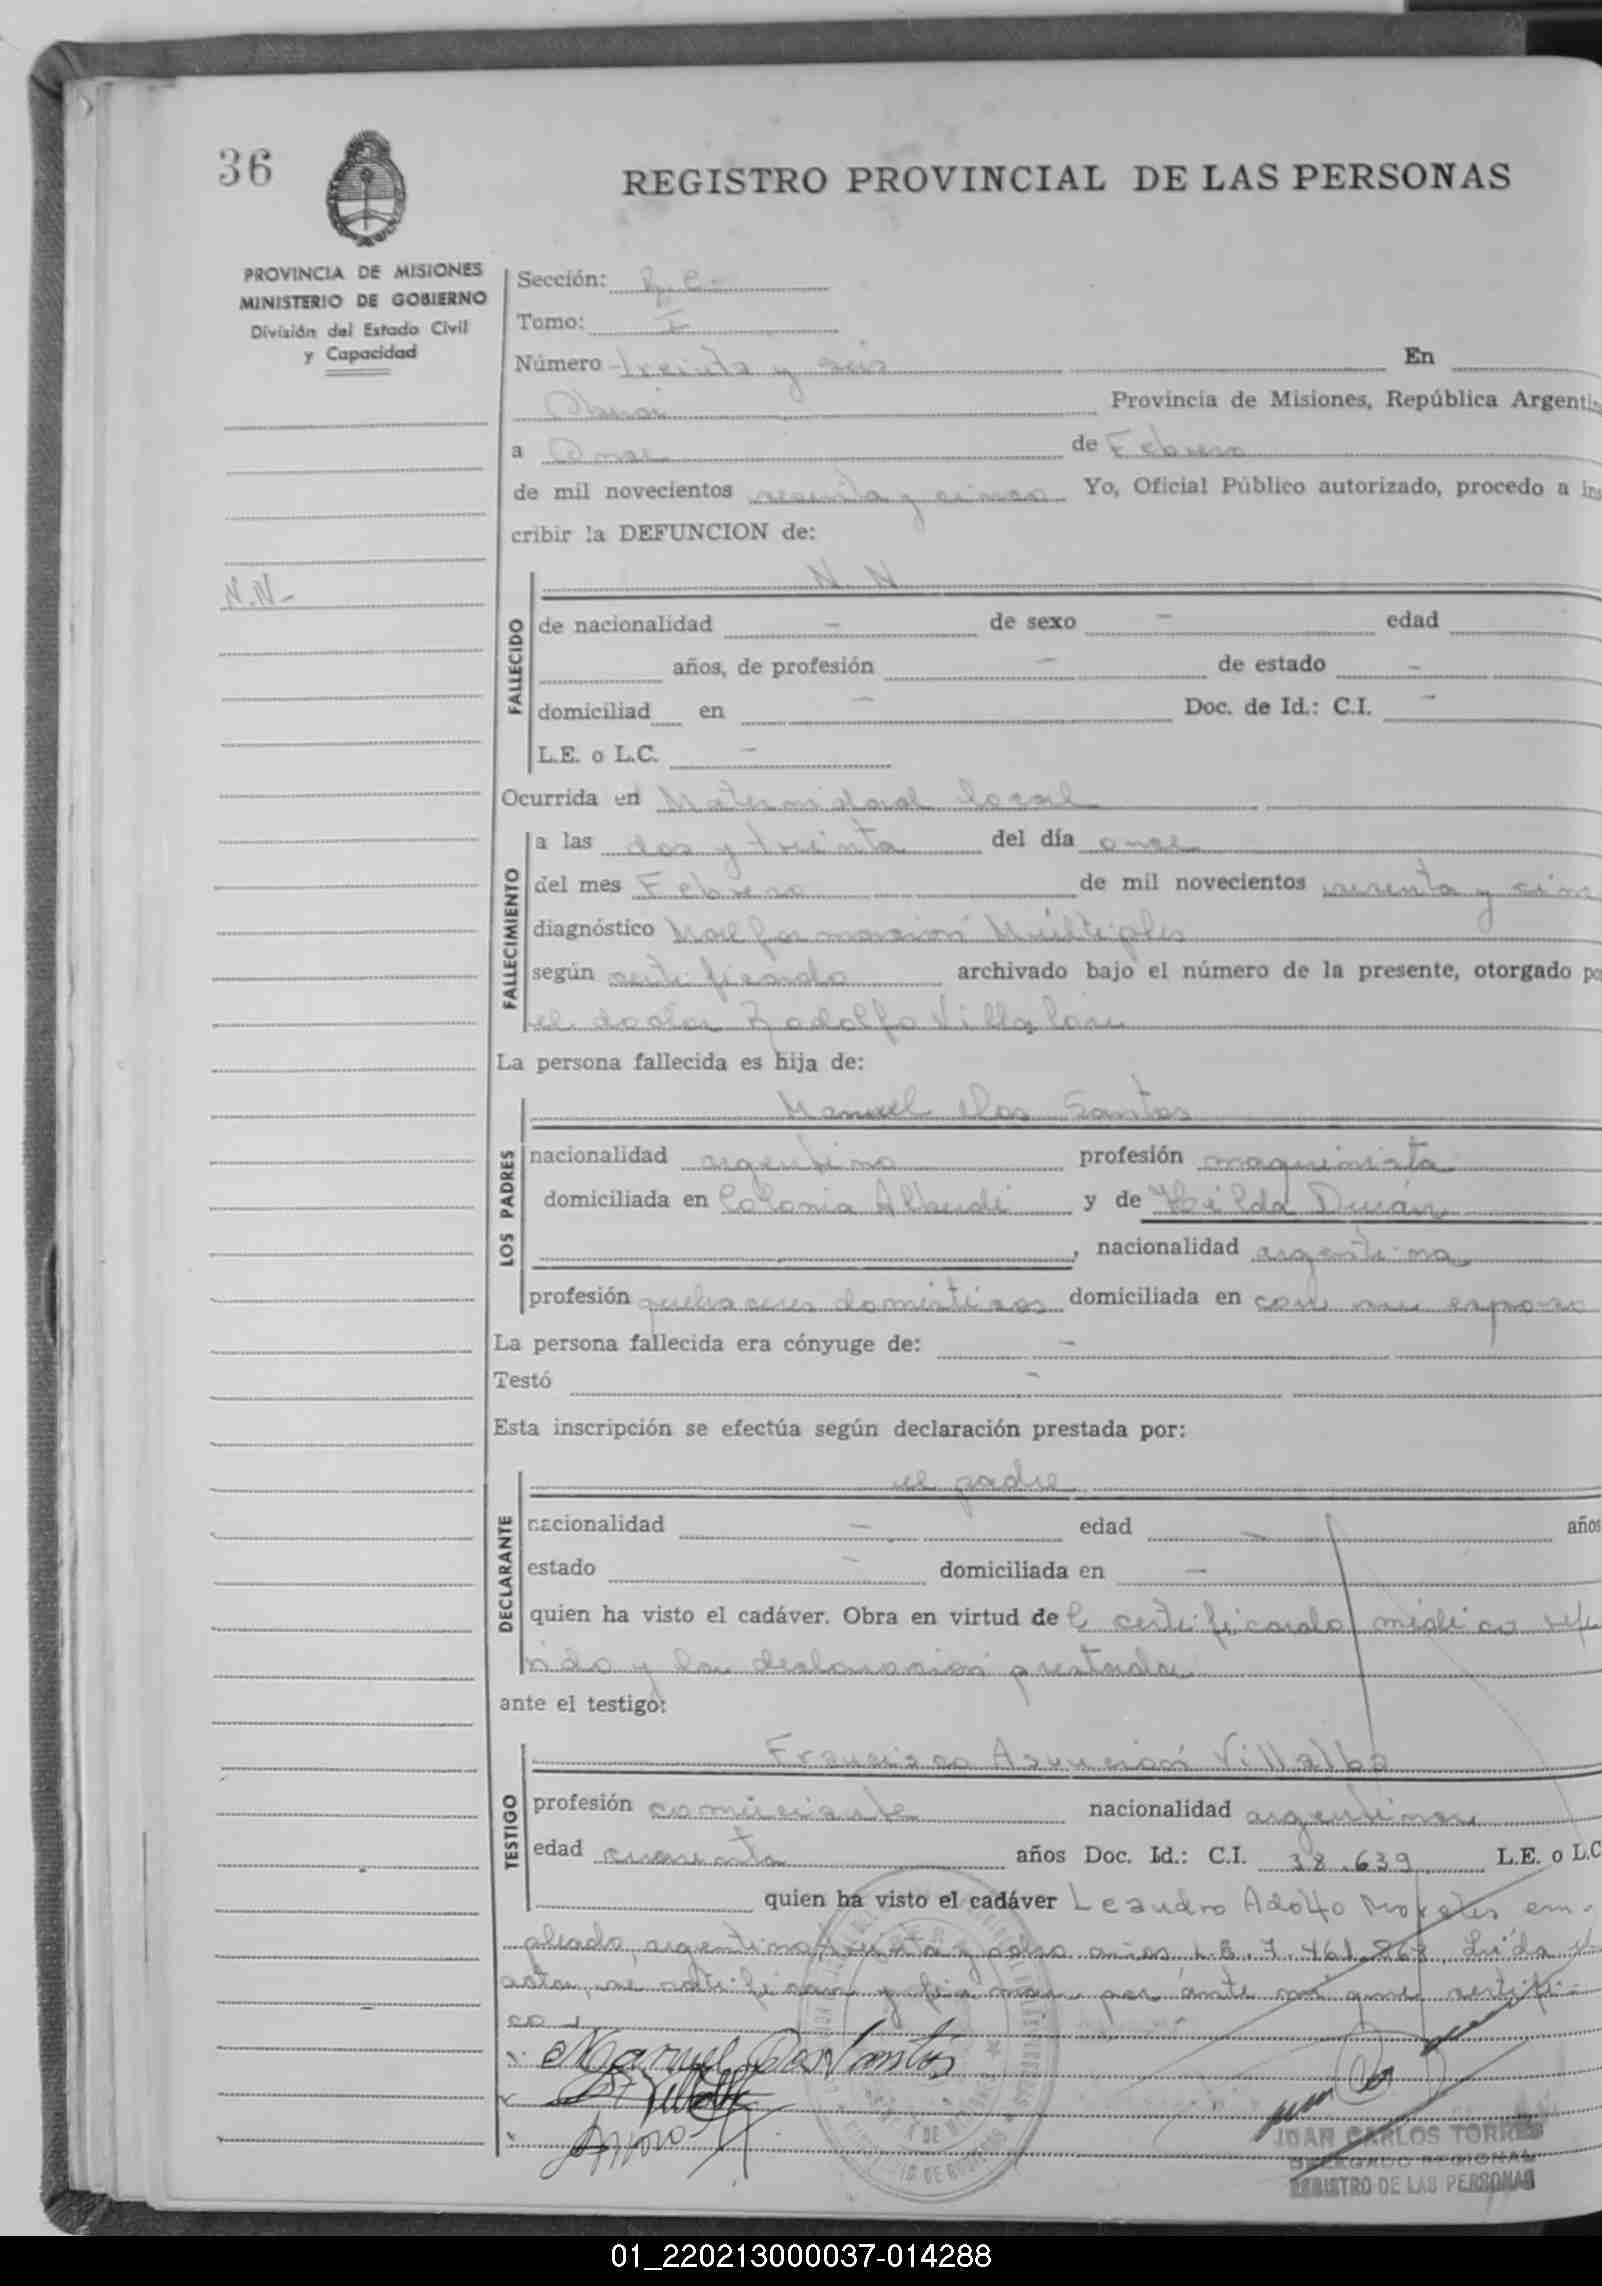 36
REGISTRO PROVINCIAL DE LAS PERSONAS
PROVINCIA DE MISIONES
MINISTERIO DE GOBIERNO
División del Estado Civil
y Capacidad
Sección:
Tomo: I
Número treinta y seis En
Oberá Provincia de Misiones, República Argentin
a Once de Febrero
de mil novecientos sesenta y cinco Yo, Oficial Público autorizado, procedo a ins
cribir la DEFUNCION de:
N.N-
N. N
FALLECIDO
de nacionalidad - de sexo - edad
años, de profesión - de estado -
domiciliad en - Doc. de Id.: C.I. -
L.E. o L.C. -
Ocurrida en Maternidad local
FALLECIMIENTO
a las dos y treinta del día once
del mes Febrero de mil novecientos sesenta y cinc
diagnóstico Malformación Múltiples
según certificado archivado bajo el número de la presente, otorgado po
el doctor Rodolfo Villalón
La persona fallecida es hija de:
LOS PADRES
Manuel dos Santos
nacionalidad argentino profesión maquinista
domiciliada en Colonia Alberdi y de Hilda Durán
, nacionalidad argentina
profesión quehaceres domésticos domiciliada en con su esposo
La persona fallecida era cónyuge de: -
Testó -
Esta inscripción se efectúa según declaración prestada por:
DECLARANTE
el padre
nacionalidad - edad - años
estado - domiciliada en -
quien ha visto el cadáver. Obra en virtud de l certificado médico refe
rido y la declaración prestada
ante el testigo:
TESTIGO
Francisco Asunción Villalba
profesión comerciante nacionalidad argentino
edad cuarenta años Doc. Id.: C.I. 38.639 L.E. o L.C
quien ha visto el cadáver Leandro Adolfo Morales em-
pleado, argentino, treinta y ocho años L.E. 7.461.868 Leída el
acta, se ratifican y firman por ante mí que certifi-
co
Manuel Dos Santos
JUAN CARLOS TORRES
DELEGADO REGIONAL
REGISTRO DE LAS PERSONAS
01_220213000037-014288